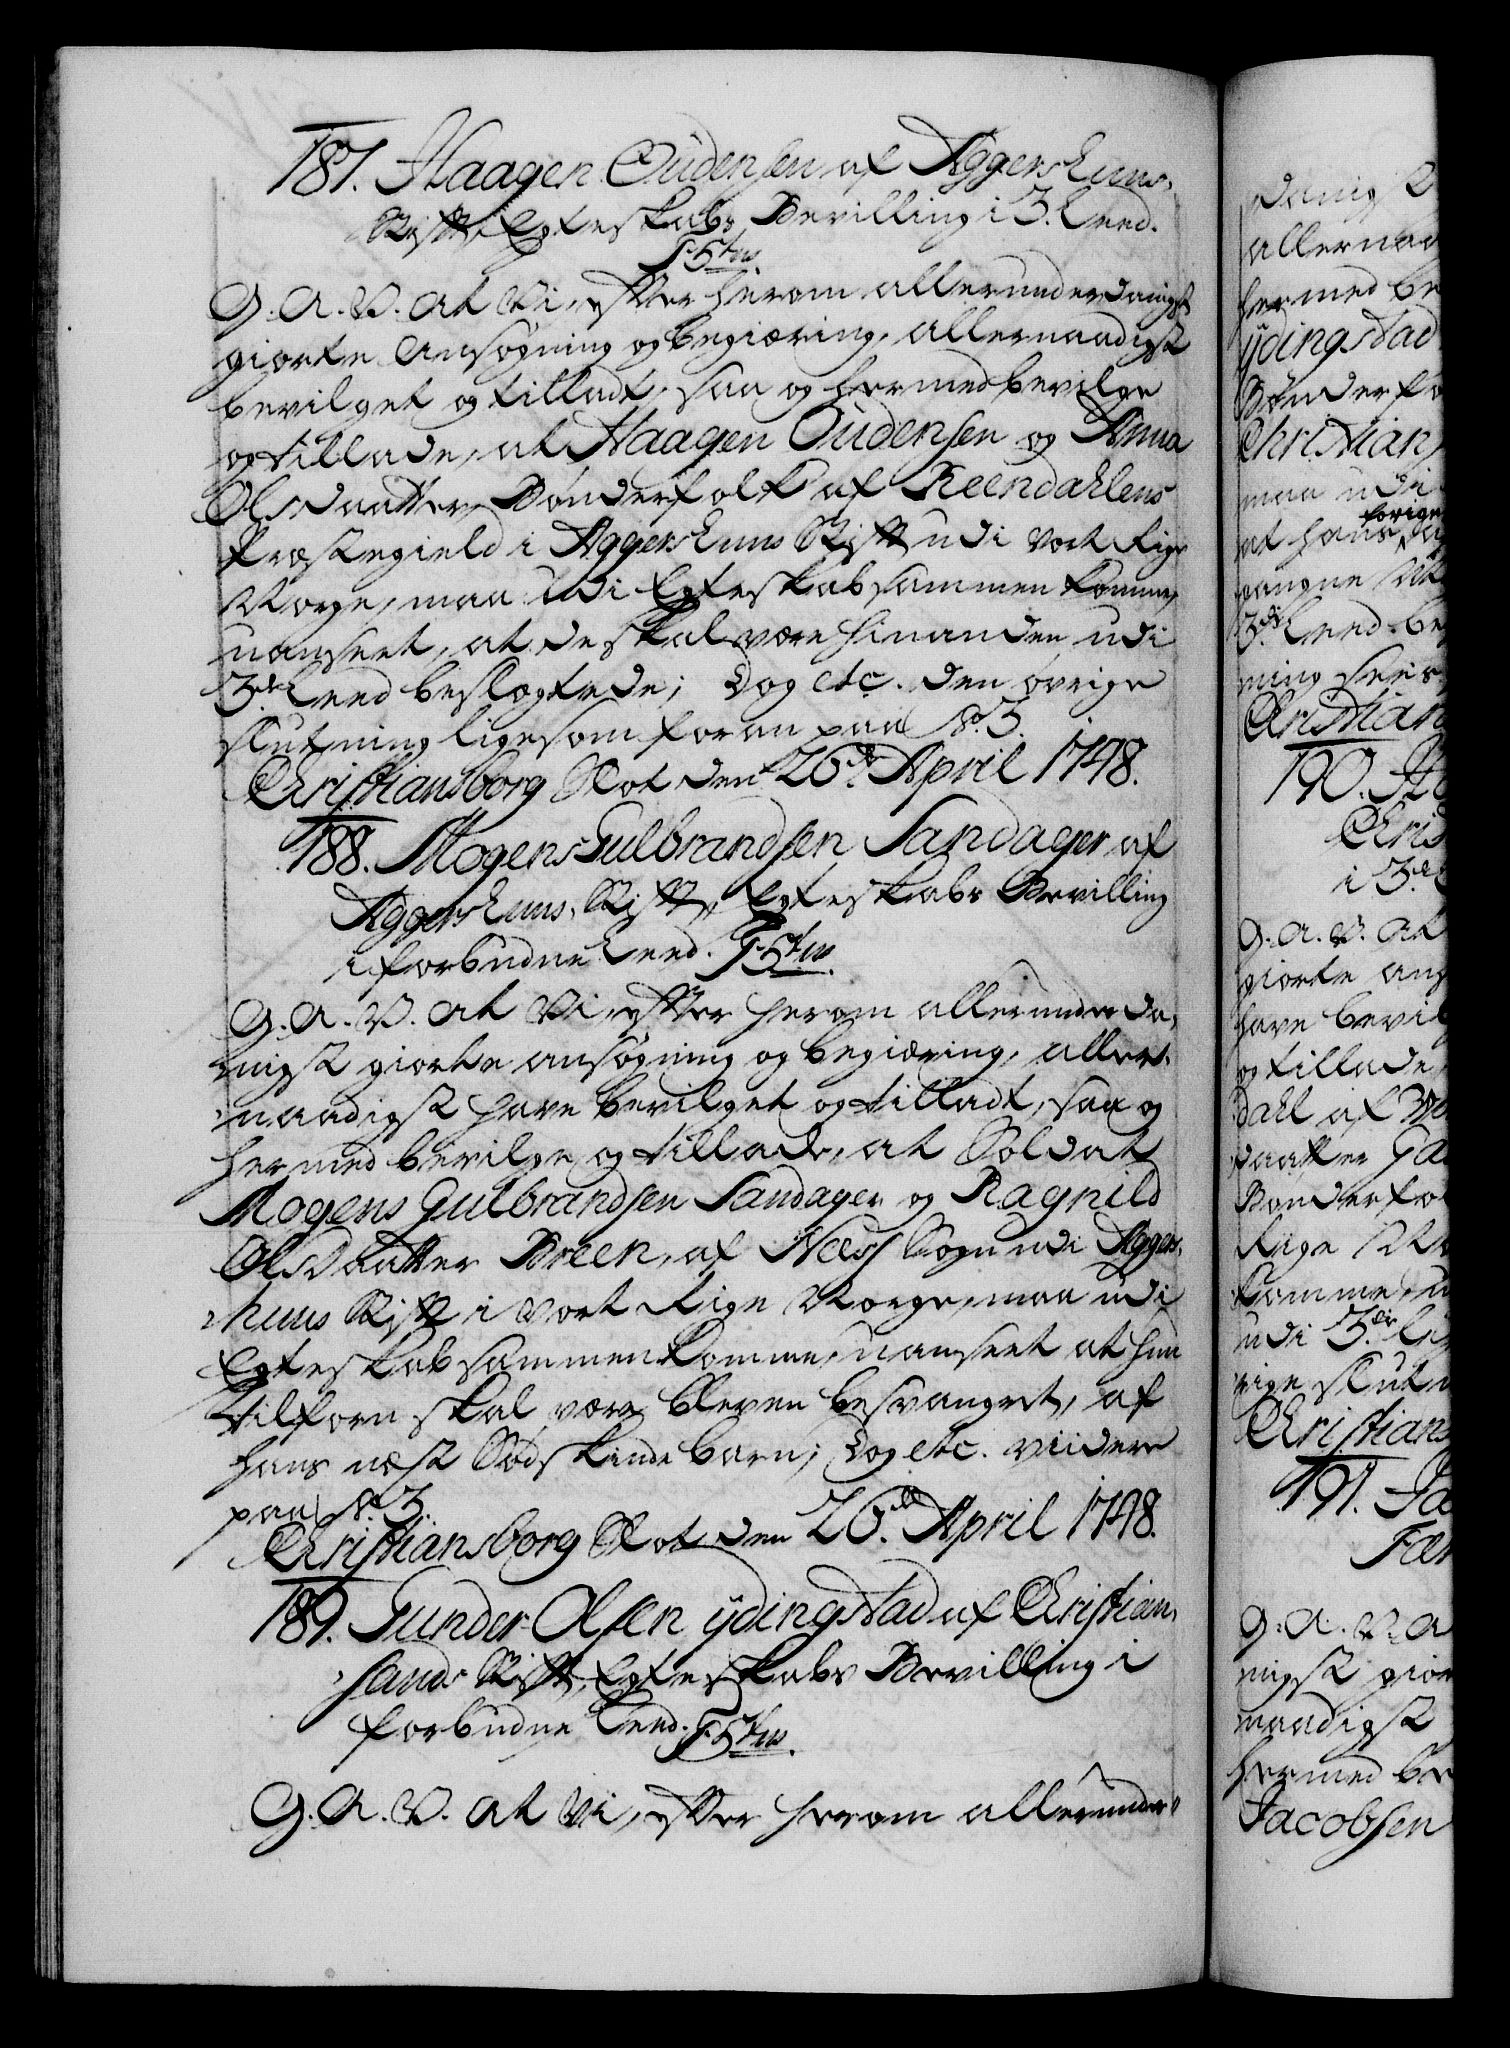 187. Haagen Oudensen af Aggershuus-
Stift, Egteskabs Bevilling i 3. Leed.
G. A. V. At Vi, efter herom allerunderdanigst
giorte Ansøgning og begiæring, allernaadigst
bevilget og tilladt, saa og hermed bevilge
og tillade, at Haagen Oudensen og Anna
Olsdaatter, Bønderfolk af Reendahlens
Præstegield i Aggershuus Stift udi vort Rige
Norge, maa udi Egteskab sammen komme,
uanseet, at de skal være hinanden udi
3die Leed beslægtede; Dog etc. den øvrige
slutning ligesom foran paa No. 3.
Christiansborg Slot den 26de April 1748.
188. Mogens Gulbrandsen Sandager af
Aggershuus, Stift, Egteskabs Bevilling
i forbudne Leed.
G. A. V. At Vi, efter herom allerunderda-
nigst giorte ansøgning og begiæring, aller-
naadigst have bevilget og tilladt, saa og
hermed bevilge og tillade, at Soldat
Mogens Gulbrandsen Sandager og Ragnild
Olsdaatter Breen, af Næss Sogn udi Agger-
huus Stift i vort Rige Norge, maa udi
Egteskab sammen komme, uanseet at hun
tilforn skal være bleven besvangret, af
hans næst Sødskinde barn; Dog etc. viidere
paa No. 3.
Christiansborg Slot den 26de April 1748.
189. Gunder Olsen ydingstad af Christian-
sands Stift, Egteskabs Bevilling i
forbudne Leed.
G. A. V. At Vi, efter herom allerunder-
allernaa
hermed be
ydingstad
Bønderfo
Christian
maa udi
forige
af hans
gangne
3die Leed be
ning sees
Christian
190.
Chris
i 3die
G. A. V. At
giorte ans
have bevil
og tillade,
Dahl af
daatter
Bønderfo
Rige No
komme, u
udi 3die
rige slutn
Christians
191. Ja
G. A. V. A
nigst gior
naadigst
hermed be
Jacobsen